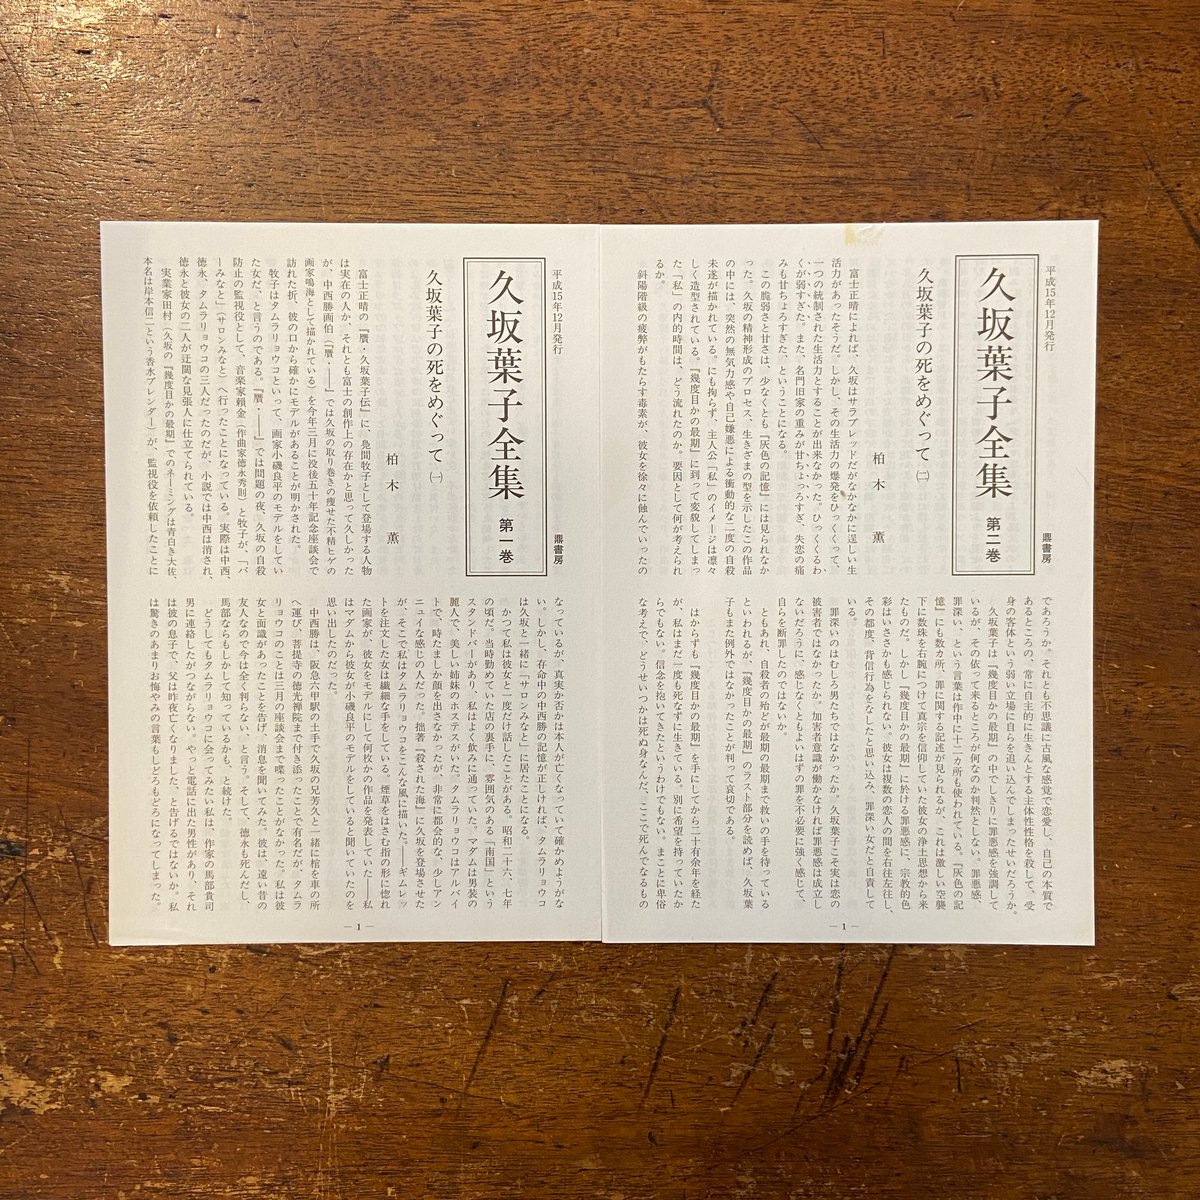 平成15年12月発行
久坂葉子全集 第二巻
鼎書房
久坂葉子の死をめぐって ㈡
柏木 薫
富士正晴によれば、久坂はサラブレッドだがなかなかに逞しい生
活力があったそうだ。しかし、その生活力の爆発をひっくくって、
一つの統制された生活力とすることが出来なかった。ひっくくるわ
くが弱すぎた。また、名門旧家の重みが甘ちょろすぎ、失恋の痛
みも甘ちょろすぎた、ということになる。
この脆弱さと甘さは、少なくとも『灰色の記憶』には見られなか
った。久坂の精神形成のプロセス、生きざまの型を示したこの作品
の中には、突然の無気力感や自己嫌悪による衝動的な二度の自殺
未遂が描かれている。にも拘らず、主人公「私」のイメージは凛々
しく造型されている。『幾度目かの最期』に到って変貌してしまっ
た「私」の内的時間は、どう流れたのか。要因として何が考えられ
るか。
斜陽階級の疲弊がもたらす毒素が、彼女を徐々に蝕んでいったの
であろうか。それとも不思議に古風な感覚で恋愛し、自己の本質で
あるところの、常に自主的に生きんとする主体性性格を殺して、受
身の客体という弱い立場に自らを追い込んでしまったせいだろうか。
久坂葉子は『幾度目かの最期』の中でしきりに罪悪感を強調して
いるが、その依って来るところが何なのか判然としない。罪悪感、
罪深い、という言葉は作中に十二カ所も使われている。『灰色の記
憶』にも数カ所、罪に関する記述が見られるが、これは激しい空襲
下に数珠を右腕につけて真宗を信仰していた彼女の浄土思想から来
たものだ。しかし『幾度目かの最期』に於ける罪悪感に、宗教的色
彩はいささかも感じられない。彼女は複数の恋人の間を右往左往し、
その都度、背信行為をなしたと思い込み、罪深い女だと自責して
いる。
罪深いのはむしろ男たちではなかったか。久坂葉子こそ実は恋の
被害者ではなかったか。加害者意識が働かなければ罪悪感は成立し
ないだろうに、感じなくともよいはずの罪を不必要に強く感じて、
自らを断罪したのではないか。
ともあれ、自殺者の殆どが最期の最期まで救いの手を待っている
といわれるが、『幾度目かの最期』のラスト部分を読めば、久坂葉
子もまた例外ではなかったことが判って哀切である。
はからずも『幾度目かの最期』を手にしてから二十有余年を経た
が、私はまだ一度も死なずに生きている。別に希望を持っていたか
らでもない。信念を抱いてきたというわけでもない。まことに卑俗
な考えで、どうせいつかは死ぬ身なんだ、ここで死んでなるもの
— 1 —
平成15年12月発行
久坂葉子全集 第一巻
鼎書房
久坂葉子の死をめぐって ㈠
柏木 薫
富士正晴の『贋・久坂葉子伝』に、鳧間牧子として登場する人物
は実在の人か、それとも富士の創作上の存在かと思って久しかった
が、中西勝画伯(『贋——』では久坂の取り巻きの痩せた不精ヒゲの
画家鳴海として描かれている)を今年三月に没後五十年記念座談会で
訪れた折、彼の口から確かにモデルがあることが明かされた。
牧子はタムラリョウコといって、画家小磯良平のモデルをしてい
た女だ、と言うのである。『贋・——』では問題の夜、久坂の自殺
防止の監視役として、音楽家頼金(作曲家徳永秀則)と牧子が、「バ
ーみなと」(サロンみなと)へ行ったことになっている。実際は中西、
徳永、タムラリョウコの三人だったのだが、小説では中西は消され、
徳永と彼女の二人が迂闊な見張人に仕立てられている。
実業家田村(久坂の『幾度目かの最期』でのネーミングは青白き大佐、
本名は岸本信二という香水ブレンダー)が、監視役を依頼したことに
なっているが、真実か否かは本人が亡くなっていて確かめようがな
い。しかし、存命中の中西勝の記憶が正しければ、タムラリョウコ
は久坂と一緒に「サロンみなと」に居たことになる。
かつて私は彼女と一度だけ話したことがある。昭和二十六、七年
の頃だ。当時勤めていた店の裏手に、雰囲気のある「南国」という
スタンドバーがあり、私はよく飲みに通っていた。マダムは男装の
麗人で、美しい姉妹のホステスがいた。タムラリョウコはアルバイ
トで、時たましか顔を出さなかったが、非常に都会的な、少しアン
ニュイな感じの人だった。拙著『殺された海』に久坂を登場させた
が、そこで私はタムラリョウコをこんな風に描いた。——ギムレッ
トを注文した女は繊細な手をしている。煙草をはさむ指の形に惚れ
た画家が、彼女をモデルにして何枚かの作品を発表していた——私
はマダムから彼女が小磯良平のモデルをしていると聞いていたのを
思い出したのだった。
中西勝は、阪急六甲駅の土手で久坂の兄芳久と一緒に棺を車の所
へ運び、菩提寺の徳光禅院まで付き添ったことで有名だが、タムラ
リョウコのことは三月の座談会まで喋ったことがなかった。私は彼
女と面識があったことを告げ、消息を聞いてみた。彼は、遠い昔の
友人なので今は全く判らない、と言う。そして、徳永も死んだし、
馬部ならもしかして知っているかも、と続けた。
どうしてもタムラリョウコに会ってみたい私は、作家の馬部貴司
男に連絡したがつながらない。やっと電話に出た男性があり、それ
は彼の息子で、父は昨夜亡くなりました、と告げるではないか。私
は驚きのあまりお悔やみの言葉もしどろもどろになってしまった。
— 1 —